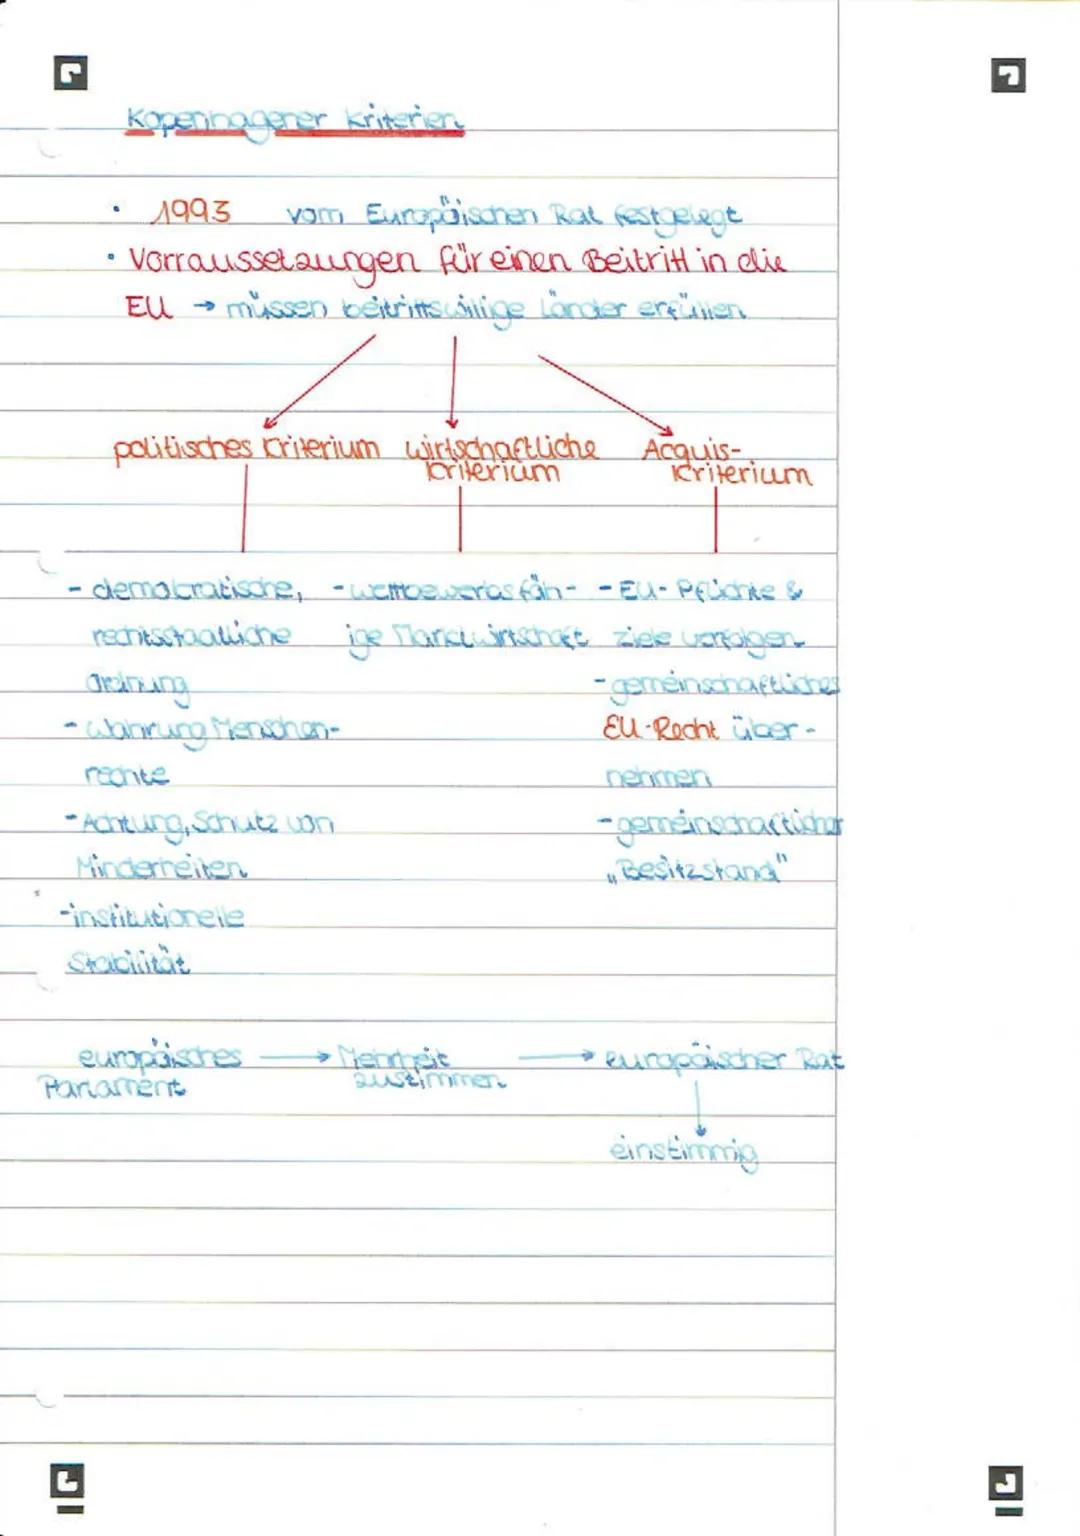 Kopenhagener Kriterien
• 1993 vom Europäischen Rat festgelegt
• Vorraussetzungen für einen Beitritt in die
EU → müssen beitrittswillige Länder erfüllen
politisches Kriterium
wirtschaftliche
Kriterium
Acquis-
Kriterium
- demokratische,
rechtsstaatliche
Ordnung
- Wahrung Menschen-
rechte
- Achtung, Schutz von
Minderheiten
- institutionelle
Stabilität
- wettbewerbsfäh-
ige Marktwirtschaft
- EU-Pflichte &
ziele verfolgen
- gemeinschaftliches
EU-Recht über-
nehmen
- gemeinschaftlicher
„Besitzstand"
europäisches
Parlament
→ Mehrheit
zustimmen
→ europäischer Rat
einstimmig